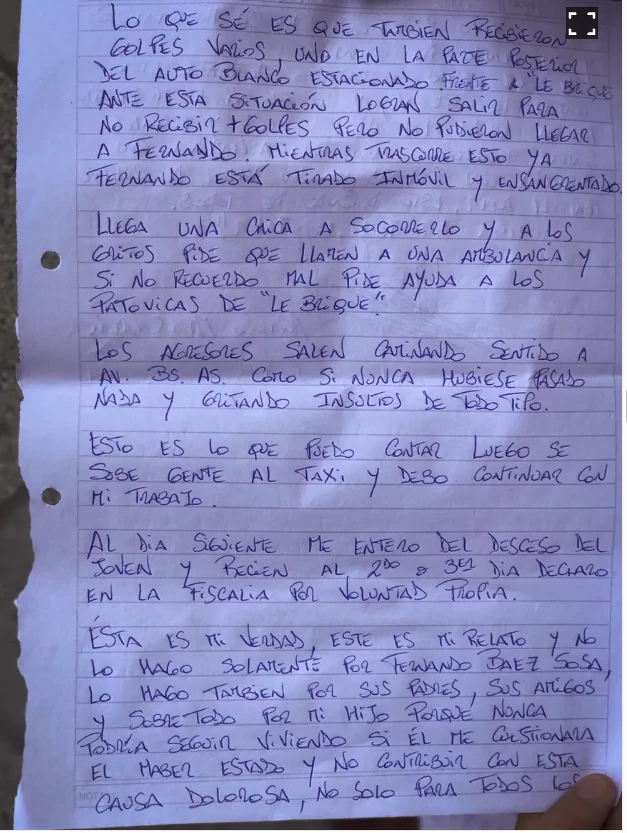 LO QUE SÉ ES QUE TAMBIEN RECIBIERON
GOLPES VARIOS, UNO EN LA PARTE POSTERIOR
DEL AUTO BLANCO ESTACIONADO FRENTE A "LE BRIQUE
ANTE ESTA SITUACIÓN LOGRAN SALIR PARA
NO RECIBIR + GOLPES PERO NO PUDIERON LLEGAR
A FERNANDO. MIENTRAS TRASCORRE ESTO YA
FERNANDO ESTÁ TIRADO INMÓVIL Y ENSANGRENTADO.
LLEGA UNA CHICA A SOCORRERLO Y A LOS
GRITOS PIDE QUE LLAMEN A UNA AMBULANCIA Y
SI NO RECUERDO MAL PIDE AYUDA A LOS
PATOVICAS DE "LE BRIQUE".
LOS AGRESORES SALEN CAMINANDO SENTIDO A
AV. BS. AS. COMO SI NUNCA HUBIESE PASADO
NADA Y GRITANDO INSULTOS DE TODO TIPO.
ESTO ES LO QUE PUEDO CONTAR LUEGO SE
SUBE GENTE AL TAXI Y DEBO CONTINUAR CON
MI TRABAJO.
AL DIA SIGUIENTE ME ENTERO DEL DESCESO DEL
JOVEN Y RECIEN AL 2DO O 3ER DIA DECLARO
EN LA FISCALIA POR VOLUNTAD PROPIA.
ÉSTA ES MI VERDAD, ESTE ES MI RELATO Y NO
LO HAGO SOLAMENTE POR FERNANDO BAEZ SOSA,
LO HAGO TAMBIEN POR SUS PADRES, SUS AMIGOS
Y SOBRETODO POR MI HIJO PORQUE NUNCA
PODRÍA SEGUIR VIVIENDO SI ÉL ME CUESTIONARA
EL HABER ESTADO Y NO CONTRIBUIR CON ESTA
CAUSA DOLOROSA, NO SOLO PARA TODOS LOS